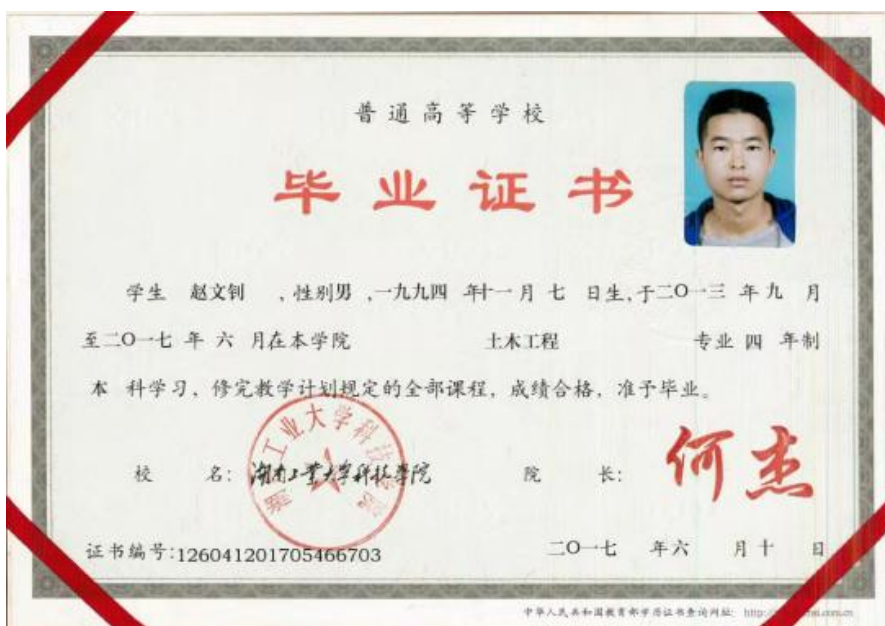 普通高等学校
毕业证书
学生 赵文钊 ,性别男 ,一九九四 年十一月 七 日生,于二〇一三 年 九 月
至二〇一七 年 六 月在本学院 土木工程 专业 四 年制
本 科学习，修完教学计划规定的全部课程，成绩合格，准予毕业。
工业大学科技学院
校 名: 湖南工业大学科技学院 院 长: 何杰
证书编号:126041201705466703 二〇一七 年六 月十 日
中华人民共和国教育部学历证书查询网址: http: